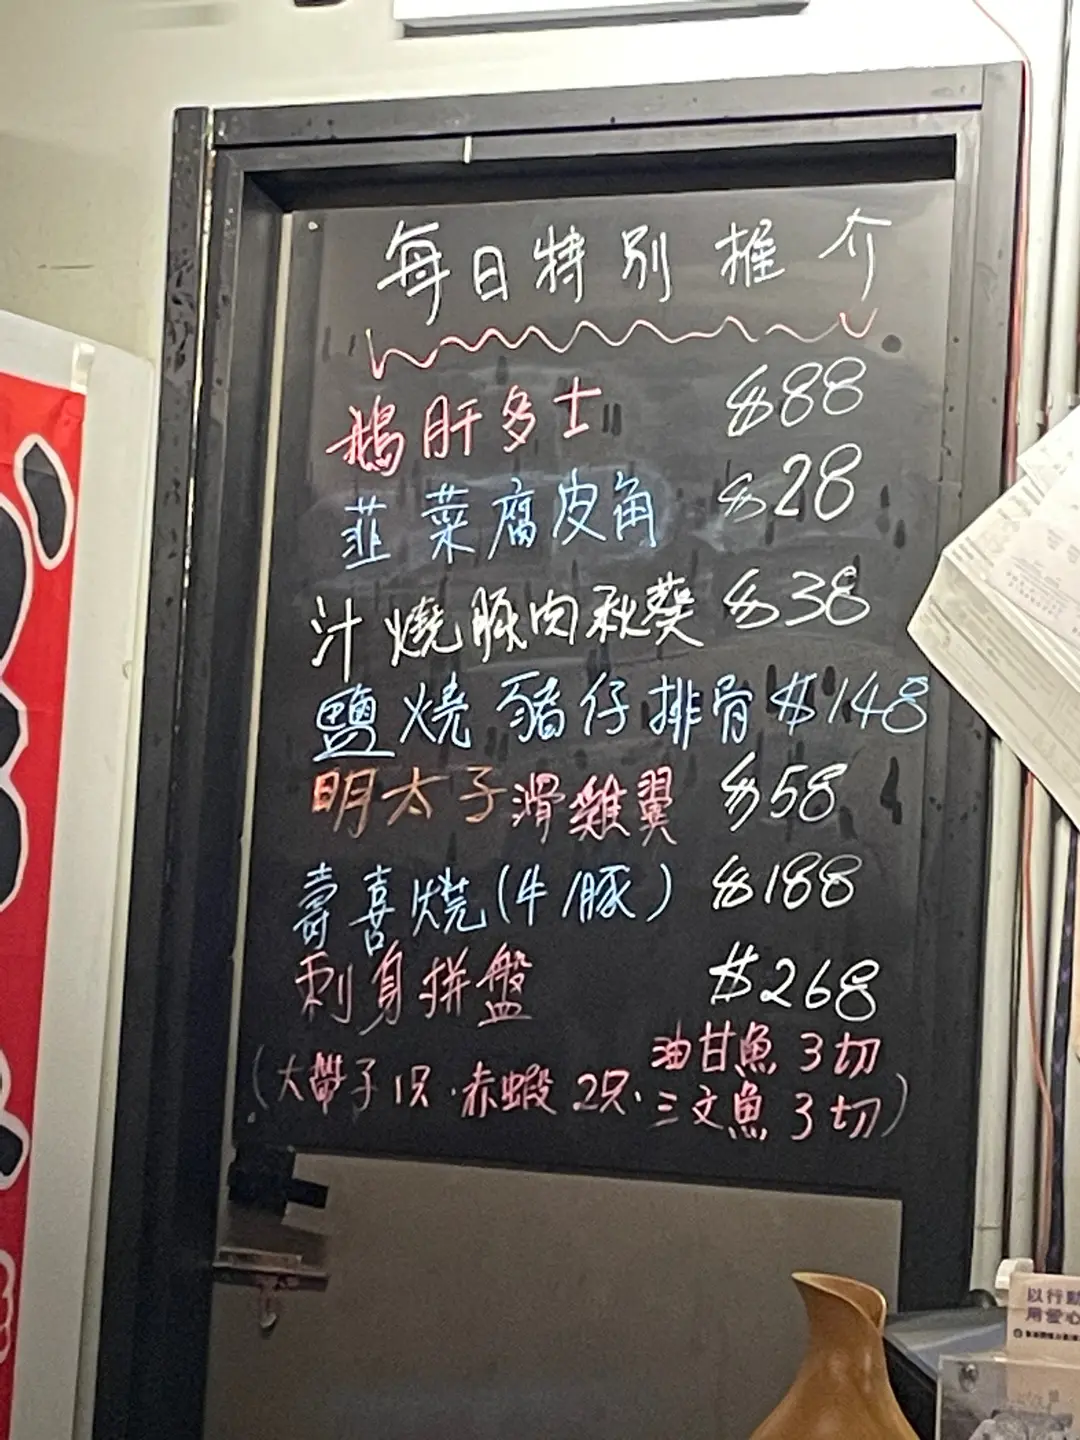 每日特別推介
鵝肝多士 $88
韮菜腐皮角 $28
汁燒豚肉秋葵 $38
鹽燒豬仔排骨 $148
明太子滑雞翼 $58
壽喜燒(牛/豚) $188
刺身拼盤 $268
(大帶子1只·赤蝦2只·油甘魚3切
三文魚3切)
以行動
用愛心